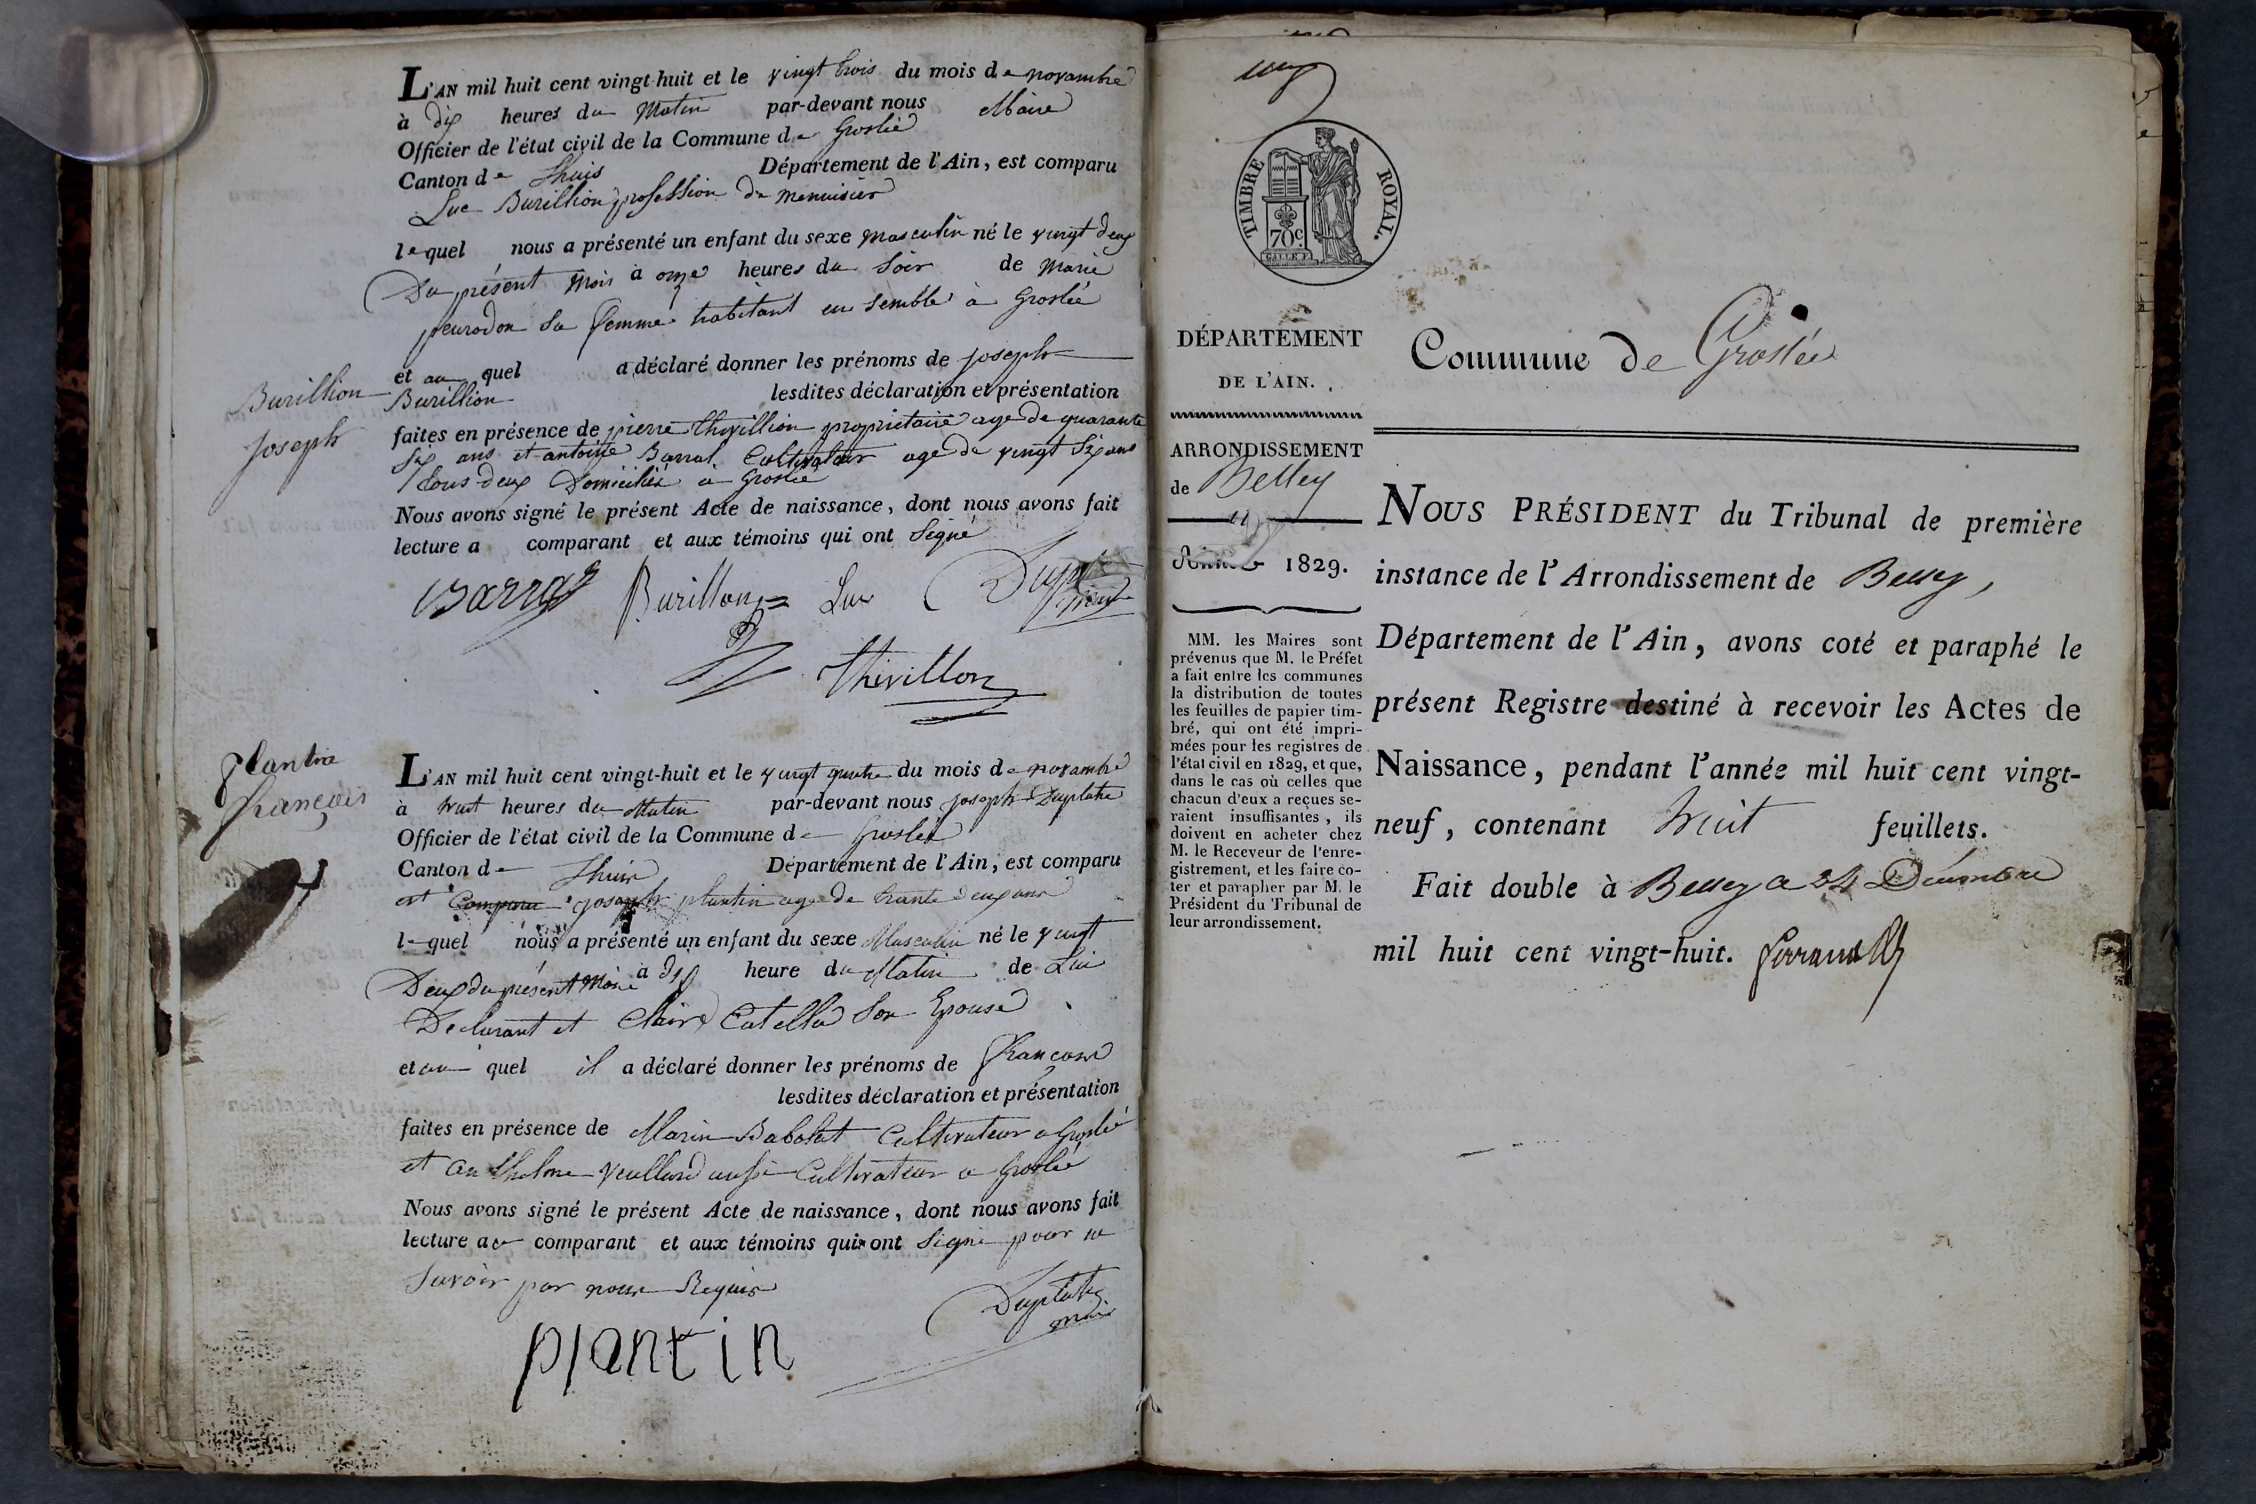 L'AN mil huit cent vingt-huit et le vingt trois du mois de novambre
à dix heures du Matin par-devant nous Maire
Officier de l'état civil de la Commune de Groslée
Canton de Lhuis Département de l'Ain, est comparu
Luc Burillion profession de menuisier
lequel nous a présenté un enfant du sexe masculin né le vingt deux
Du présent mois à onze heures du Soir de Marie
peurodon sa femme habitant en semble à Groslée
et au quel a déclaré donner les prénoms de joseph
Burillion lesdites déclaration et présentation
Burillion
joseph
faites en présence de pierre thevillion propriétaire age de quarante
six ans et antoine Barral Cultivateur age de vingt six ans
tous deux Domiciliés à Groslée
Nous avons signé le présent Acte de naissance, dont nous avons fait
lecture a comparant et aux témoins qui ont Signé
Barral Burillon Luc
Thevillon
plantin
françois
L'AN mil huit cent vingt-huit et le vingt quatre du mois de novambre
à huit heures du Matin par-devant nous joseph Duplatre
Officier de l'état civil de la Commune de Groslée
Canton de Lhuis Département de l'Ain, est comparu
est Comparu joseph plantin age de trante deux ans
lequel nous a présenté un enfant du sexe Masculin né le vingt
Deux du présent Mois à dix heure du Matin de Lui
Declarant et Claire Catella Son Epouse
et au quel il a déclaré donner les prénoms de françois
lesdites déclaration et présentation
faites en présence de Marin Babolat Cultivateur a Groslée
et anthelme veullerd aussi Cultivateur a Groslée
Nous avons signé le présent Acte de naissance, dont nous avons fait
lecture au comparant et aux témoins qui ont Signé pour ne
Savoir par nous Requis
Duplatre
maire
plantin
TIMBRE ROYAL.
70c.
DÉPARTEMENT
DE L'AIN.
ARRONDISSEMENT
de Belley
Année 1829.
MM. les Maires sont
prévenus que M. le Préfet
a fait entre les communes
la distribution de toutes
les feuilles de papier tim-
bré, qui ont été impri-
mées pour les registres de
l'état civil en 1829, et que,
dans le cas où celles que
chacun d'eux a reçues se-
raient insuffisantes, ils
doivent en acheter chez
M. le Receveur de l'enre-
gistrement, et les faire co-
ter et parapher par M. le
Président du Tribunal de
leur arrondissement.
Commune de Groslée
NOUS PRÉSIDENT du Tribunal de première
instance de l'Arrondissement de Belley,
Département de l'Ain, avons coté et paraphé le
présent Registre destiné à recevoir les Actes de
Naissance, pendant l'année mil huit cent vingt-
neuf, contenant huit feuillets.
Fait double à Belley a 24 Décembre
mil huit cent vingt-huit.